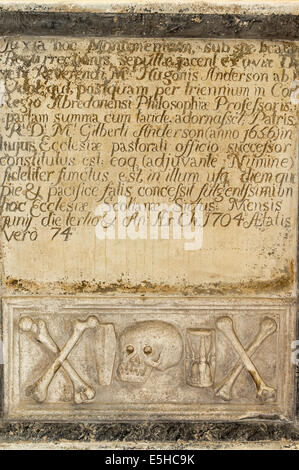 Juxta hoc Monumentum, sub spe beatæ
Resurrectionis, sepultæ jacent exuviæ D
Reverendi Mri Hugonis Anderson ab
qui, postquam per triennium in Col
legio Abredonensi Philosophiæ Professoris
partam summa cum laude adornasset Patris
R. D. Mri Gilberti Anderson (anno 1656) in
hujus Ecclesiæ pastorali officio successor
constitutus est: eoq (adjuvante Numine)
fideliter functus est, in illum usq diem quo
pie & pacifice fatis concessit
hoc Ecclesiæ Sacello Mensis
Junij die tertio Ær Ch 1704 Ætatis
vero 74
alamy
Image ID: E5HC9K
www.alamy.com